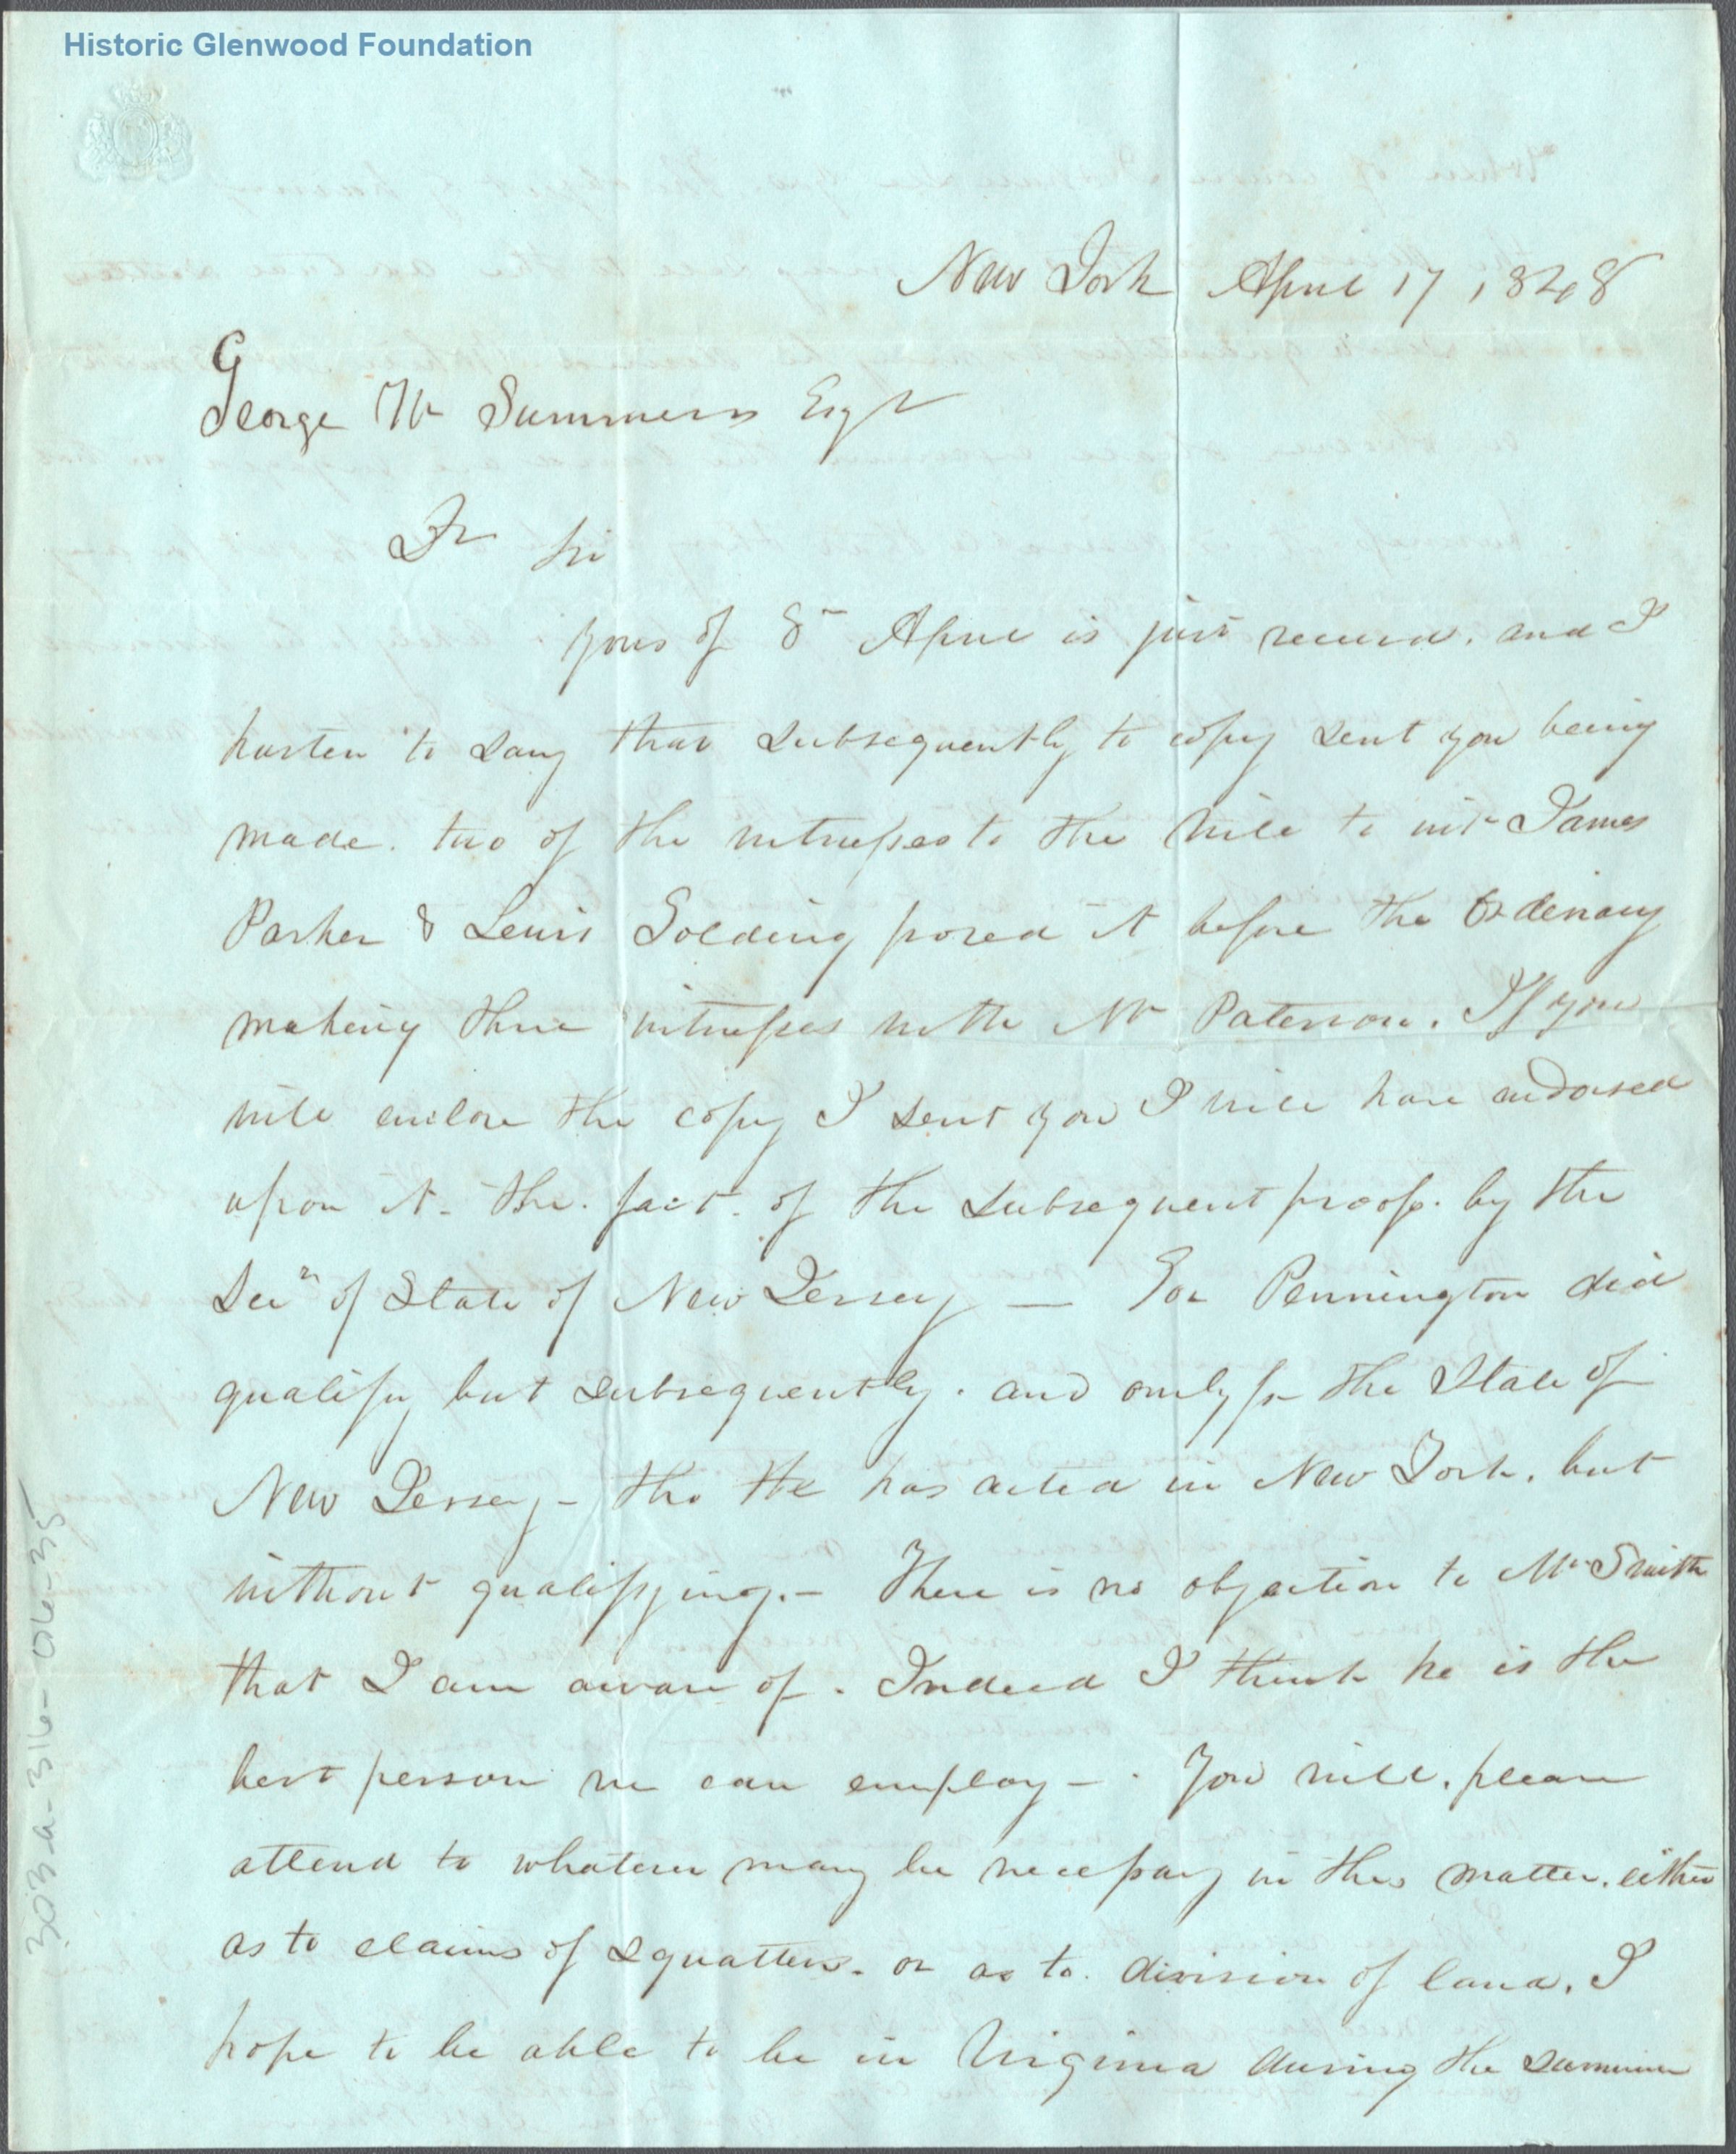 Historic Glenwood Foundation
New York April 17, 1848
George W Summers Esqr
Dr Sir
Yours of 8th April is just received. and I
hasten to say that subsequently to copy sent you being
made. two of the witnesses to the Will to wit James
Parker & Lewis Golding proved it before the Ordinary
making three witnesses with Mr Paterson. If you
will enclose the copy I sent you I will have endorsed
upon it. the. fact. of the subsequent proof. by the
Secy of State of New Jersey — Gov Pennington did
qualify but subsequently. and only for the State of
New Jersey – tho He has acted in New York. but
without qualifying. – There is no objection to Mr Smith
that I am aware of. Indeed I think he is the
best person we can employ – . You will. please
attend to whatever may be necessary in this matter. either
as to claims of squatters. or as to. division of land. I
hope to be able to be in Virginia during the summer
303a-316-06-35